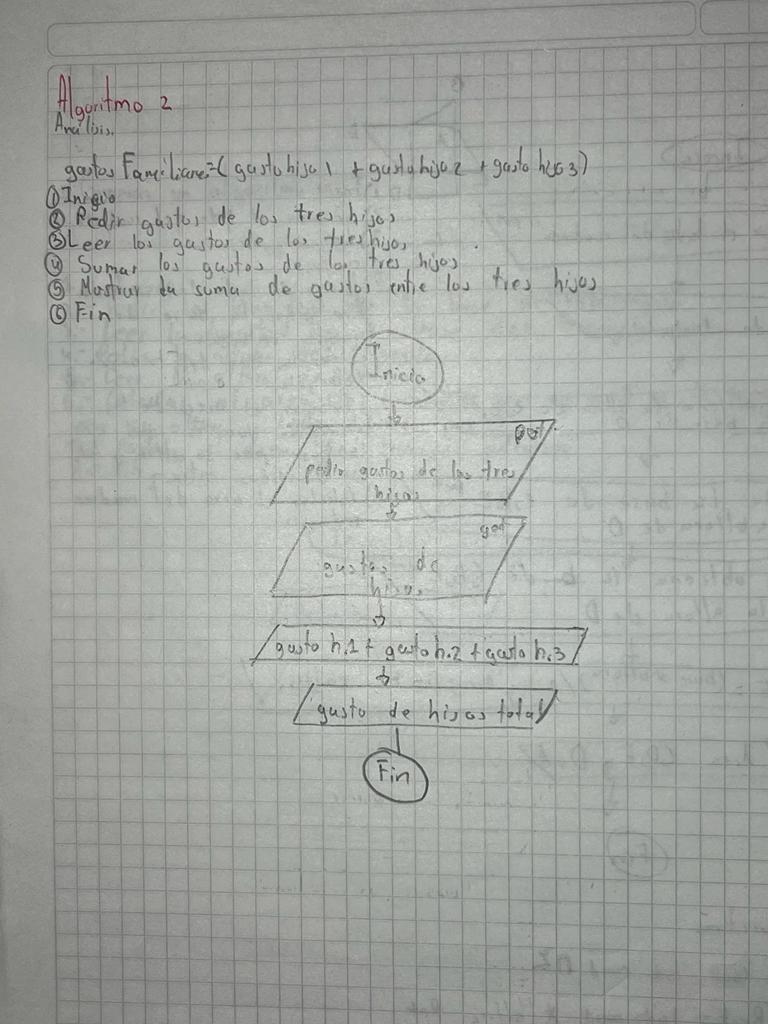 Algoritmo 2
Análisis.
gastos Familiares=( gasto hijo 1 + gasto hijo 2 + gasto hijo 3)
① Inicio
② Pedir gastos de los tres hijos
③ Leer los gastos de los tres hijos
④ Sumar los gastos de los tres hijos
⑤ Mostrar la suma de gastos entre los tres hijos
⑥ Fin
Inicio
put
pedir gastos de los tres
hijos
get
gastos de
hijos
gasto h.1 + gasto h.2 + gasto h.3
gasto de hijos total
Fin